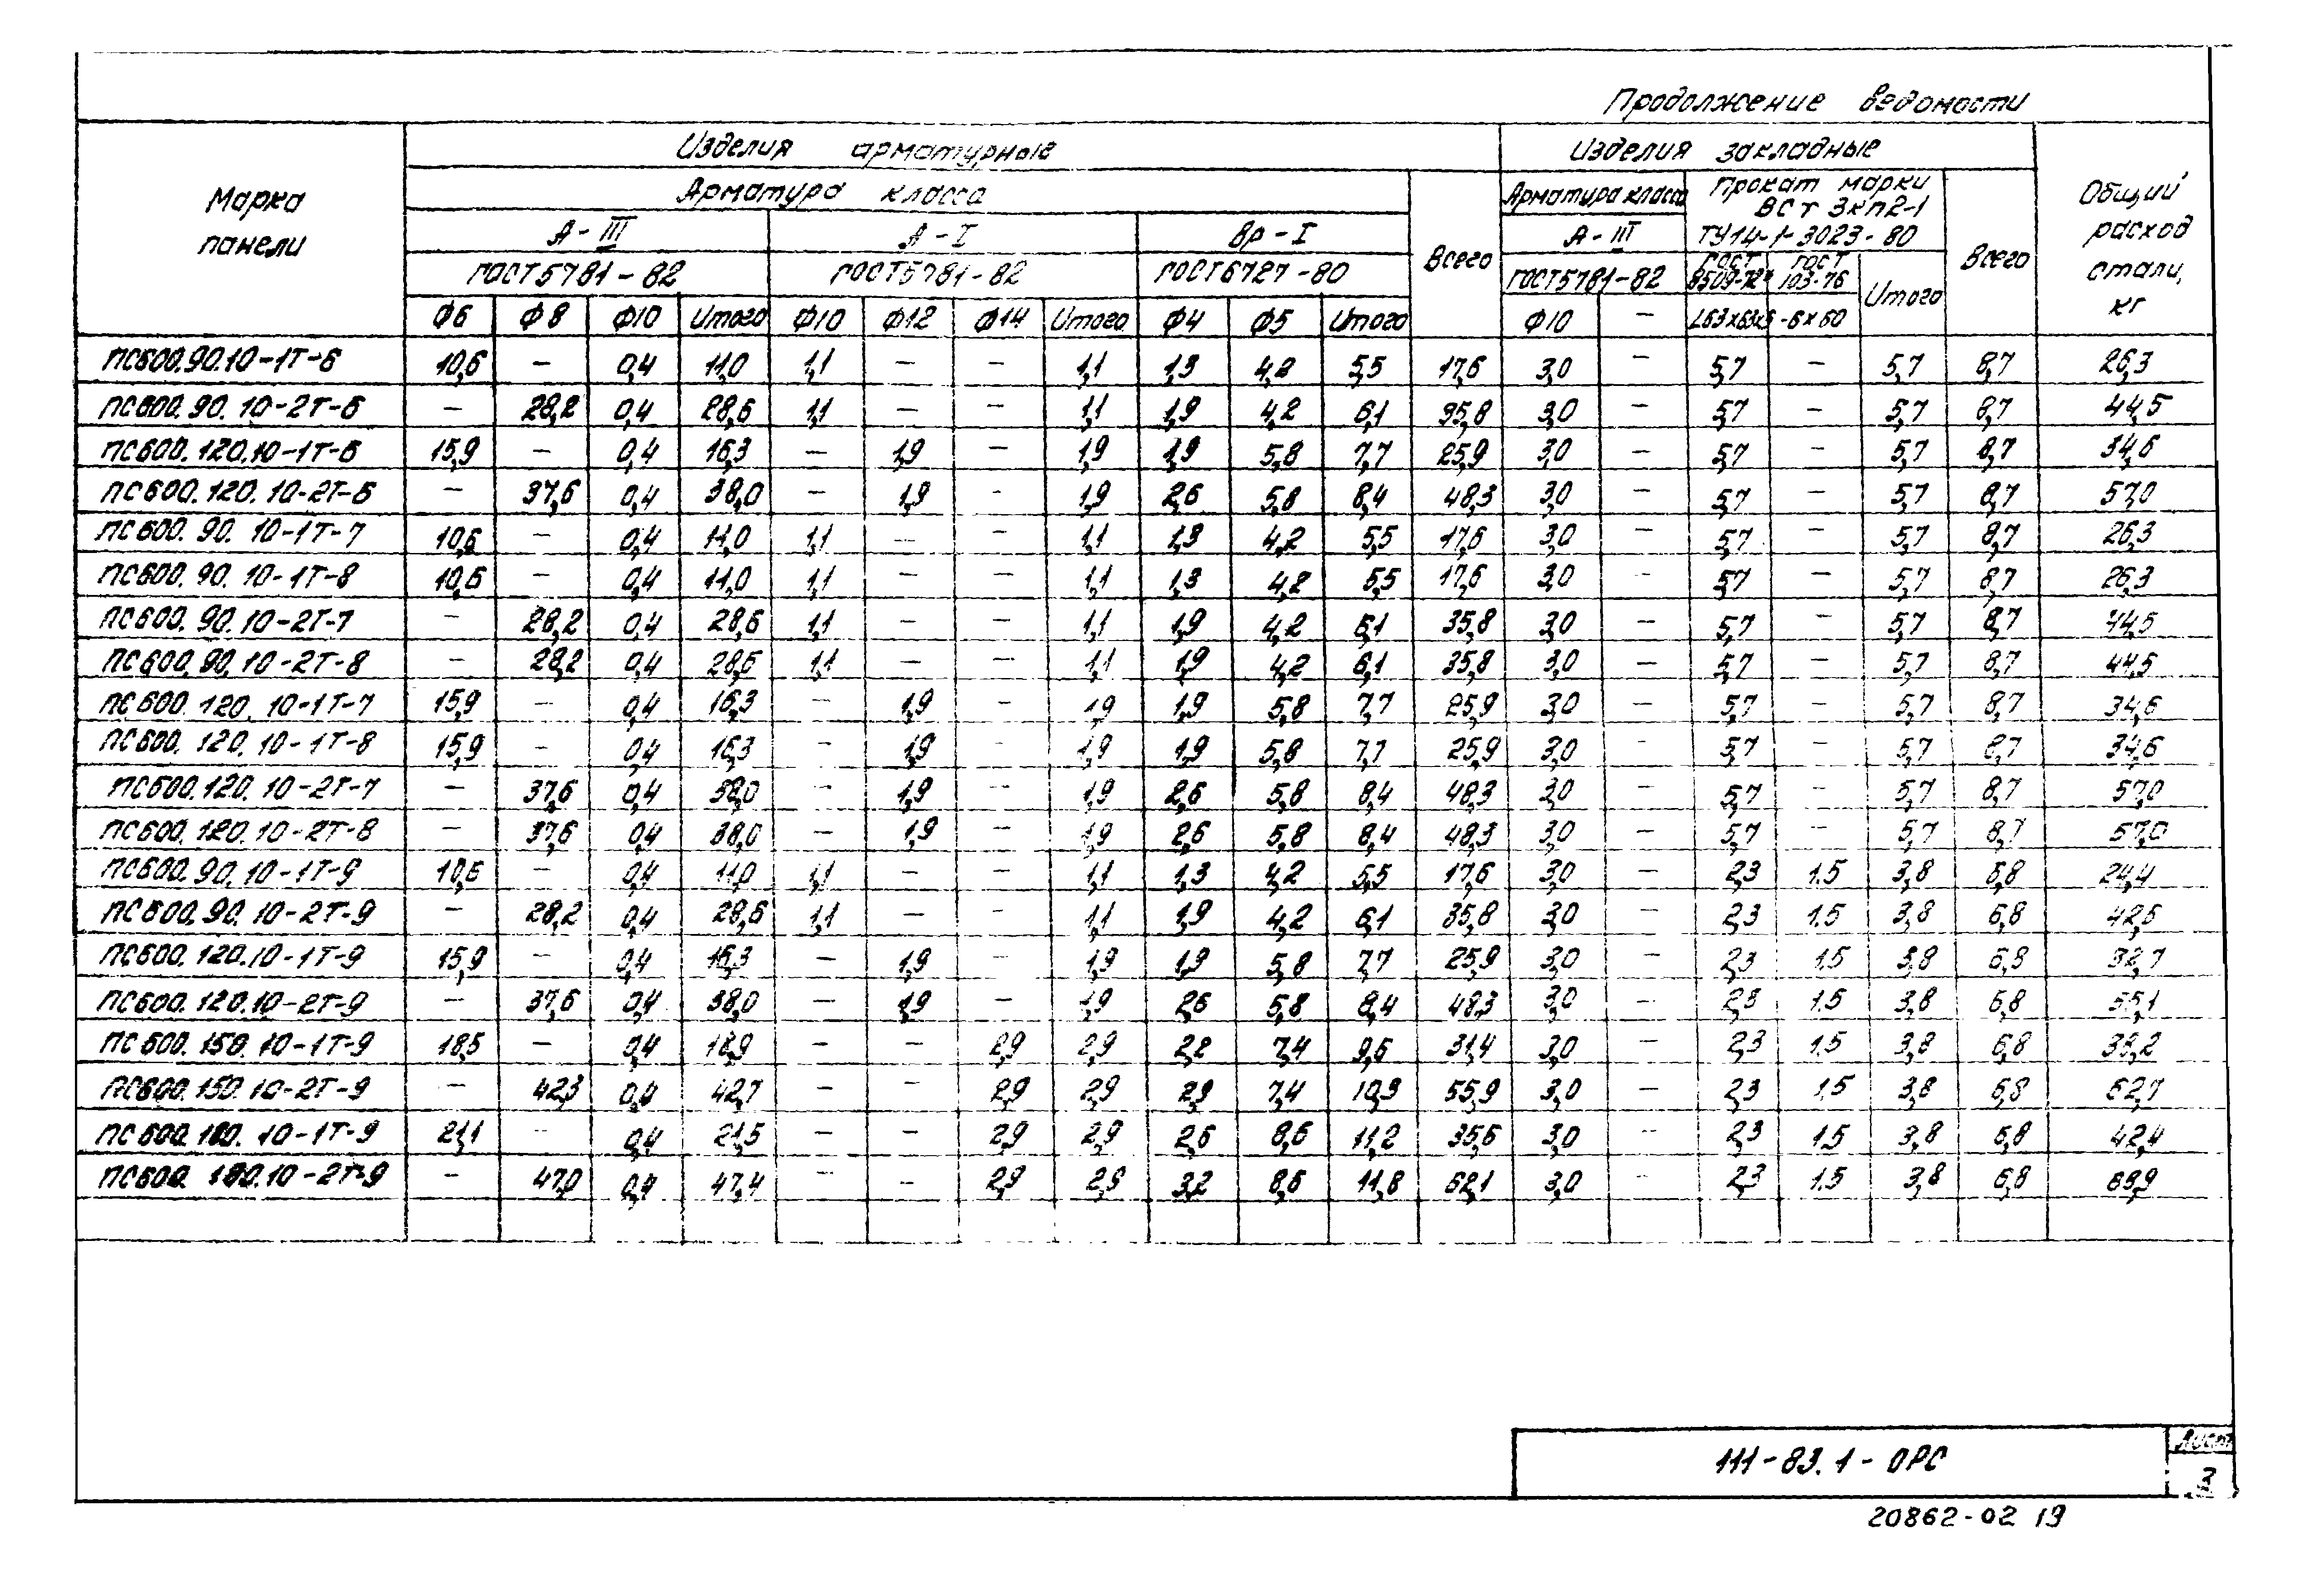 Продолжение ведомости
Марка панели Изделия арматурные Изделия закладные Общий расход стали, кг
Арматура класса Всего Арматура класса Прокат марки ВСт 3кп2-1 ТУ14-1-3023-80 Всего
А-III А-I Вр-I А-III
ГОСТ5781-82 ГОСТ5781-82 ГОСТ6727-80 ГОСТ5781-82 ГОСТ 8509-72* ГОСТ 103-76 Итого
Ф6 Ф8 Ф10 Итого Ф10 Ф12 Ф14 Итого Ф4 Ф5 Итого Ф10 - L63х63х5 -6х60
ПС600.90.10-1Т-6 10,6 - 0,4 11,0 1,1 - - 1,1 1,3 4,2 5,5 17,6 3,0 - 5,7 - 5,7 8,7 26,3
ПС600.90.10-2Т-6 - 28,2 0,4 28,6 1,1 - - 1,1 1,9 4,2 6,1 35,8 3,0 - 5,7 - 5,7 8,7 44,5
ПС600.120.10-1Т-6 15,9 - 0,4 16,3 - 1,9 - 1,9 1,9 5,8 7,7 25,9 3,0 - 5,7 - 5,7 8,7 34,6
ПС600.120.10-2Т-6 - 37,6 0,4 38,0 - 1,9 - 1,9 2,6 5,8 8,4 48,3 3,0 - 5,7 - 5,7 8,7 57,0
ПС600.90.10-1Т-7 10,6 - 0,4 11,0 1,1 - - 1,1 1,3 4,2 5,5 17,6 3,0 - 5,7 - 5,7 8,7 26,3
ПС600.90.10-1Т-8 10,6 - 0,4 11,0 1,1 - - 1,1 1,3 4,2 5,5 17,6 3,0 - 5,7 - 5,7 8,7 26,3
ПС600.90.10-2Т-7 - 28,2 0,4 28,6 1,1 - - 1,1 1,9 4,2 6,1 35,8 3,0 - 5,7 - 5,7 8,7 44,5
ПС600.90.10-2Т-8 - 28,2 0,4 28,6 1,1 - - 1,1 1,9 4,2 6,1 35,8 3,0 - 5,7 - 5,7 8,7 44,5
ПС600.120.10-1Т-7 15,9 - 0,4 16,3 - 1,9 - 1,9 1,9 5,8 7,7 25,9 3,0 - 5,7 - 5,7 8,7 34,6
ПС600.120.10-1Т-8 15,9 - 0,4 16,3 - 1,9 - 1,9 1,9 5,8 7,7 25,9 3,0 - 5,7 - 5,7 8,7 34,6
ПС600.120.10-2Т-7 - 37,6 0,4 38,0 - 1,9 - 1,9 2,6 5,8 8,4 48,3 3,0 - 5,7 - 5,7 8,7 57,0
ПС600.120.10-2Т-8 - 37,6 0,4 38,0 - 1,9 - 1,9 2,6 5,8 8,4 48,3 3,0 - 5,7 - 5,7 8,7 57,0
ПС600.90.10-1Т-9 10,6 - 0,4 11,0 1,1 - - 1,1 1,3 4,2 5,5 17,6 3,0 - 2,3 1.5 3,8 6,8 24,4
ПС600.90.10-2Т-9 - 28,2 0,4 28,6 1,1 - - 1,1 1,9 4,2 6,1 35,8 3,0 - 2,3 1.5 3,8 6,8 42,6
ПС600.120.10-1Т-9 15,9 - 0,4 16,3 - 1,9 - 1,9 1,9 5,8 7,7 25,9 3,0 - 2,3 1.5 3,8 6,8 32,7
ПС600.120.10-2Т-9 - 37,6 0,4 38,0 - 1,9 - 1,9 2,6 5,8 8,4 48,3 3,0 - 2,3 1.5 3,8 6,8 55,1
ПС600.150.10-1Т-9 18,5 - 0,4 18,9 - - 2,9 2,9 2,2 7,4 9,6 31,4 3,0 - 2,3 1.5 3,8 6,8 38,2
ПС600.150.10-2Т-9 - 42,3 0,4 42,7 - - 2,9 2,9 2,9 7,4 10,3 55,9 3,0 - 2,3 1.5 3,8 6,8 62,7
ПС600.180.10-1Т-9 21,1 - 0,4 21,5 - - 2,9 2,9 2,6 8,6 11,2 35,6 3,0 - 2,3 1.5 3,8 6,8 42,4
ПС600.180.10-2Т-9 - 47,0 0,4 47,4 - - 2,9 2,9 3,2 8,6 11,8 62,1 3,0 - 2,3 1.5 3,8 6,8 68,9
111-83.1-ОРС
Лист
3
20862-02 19